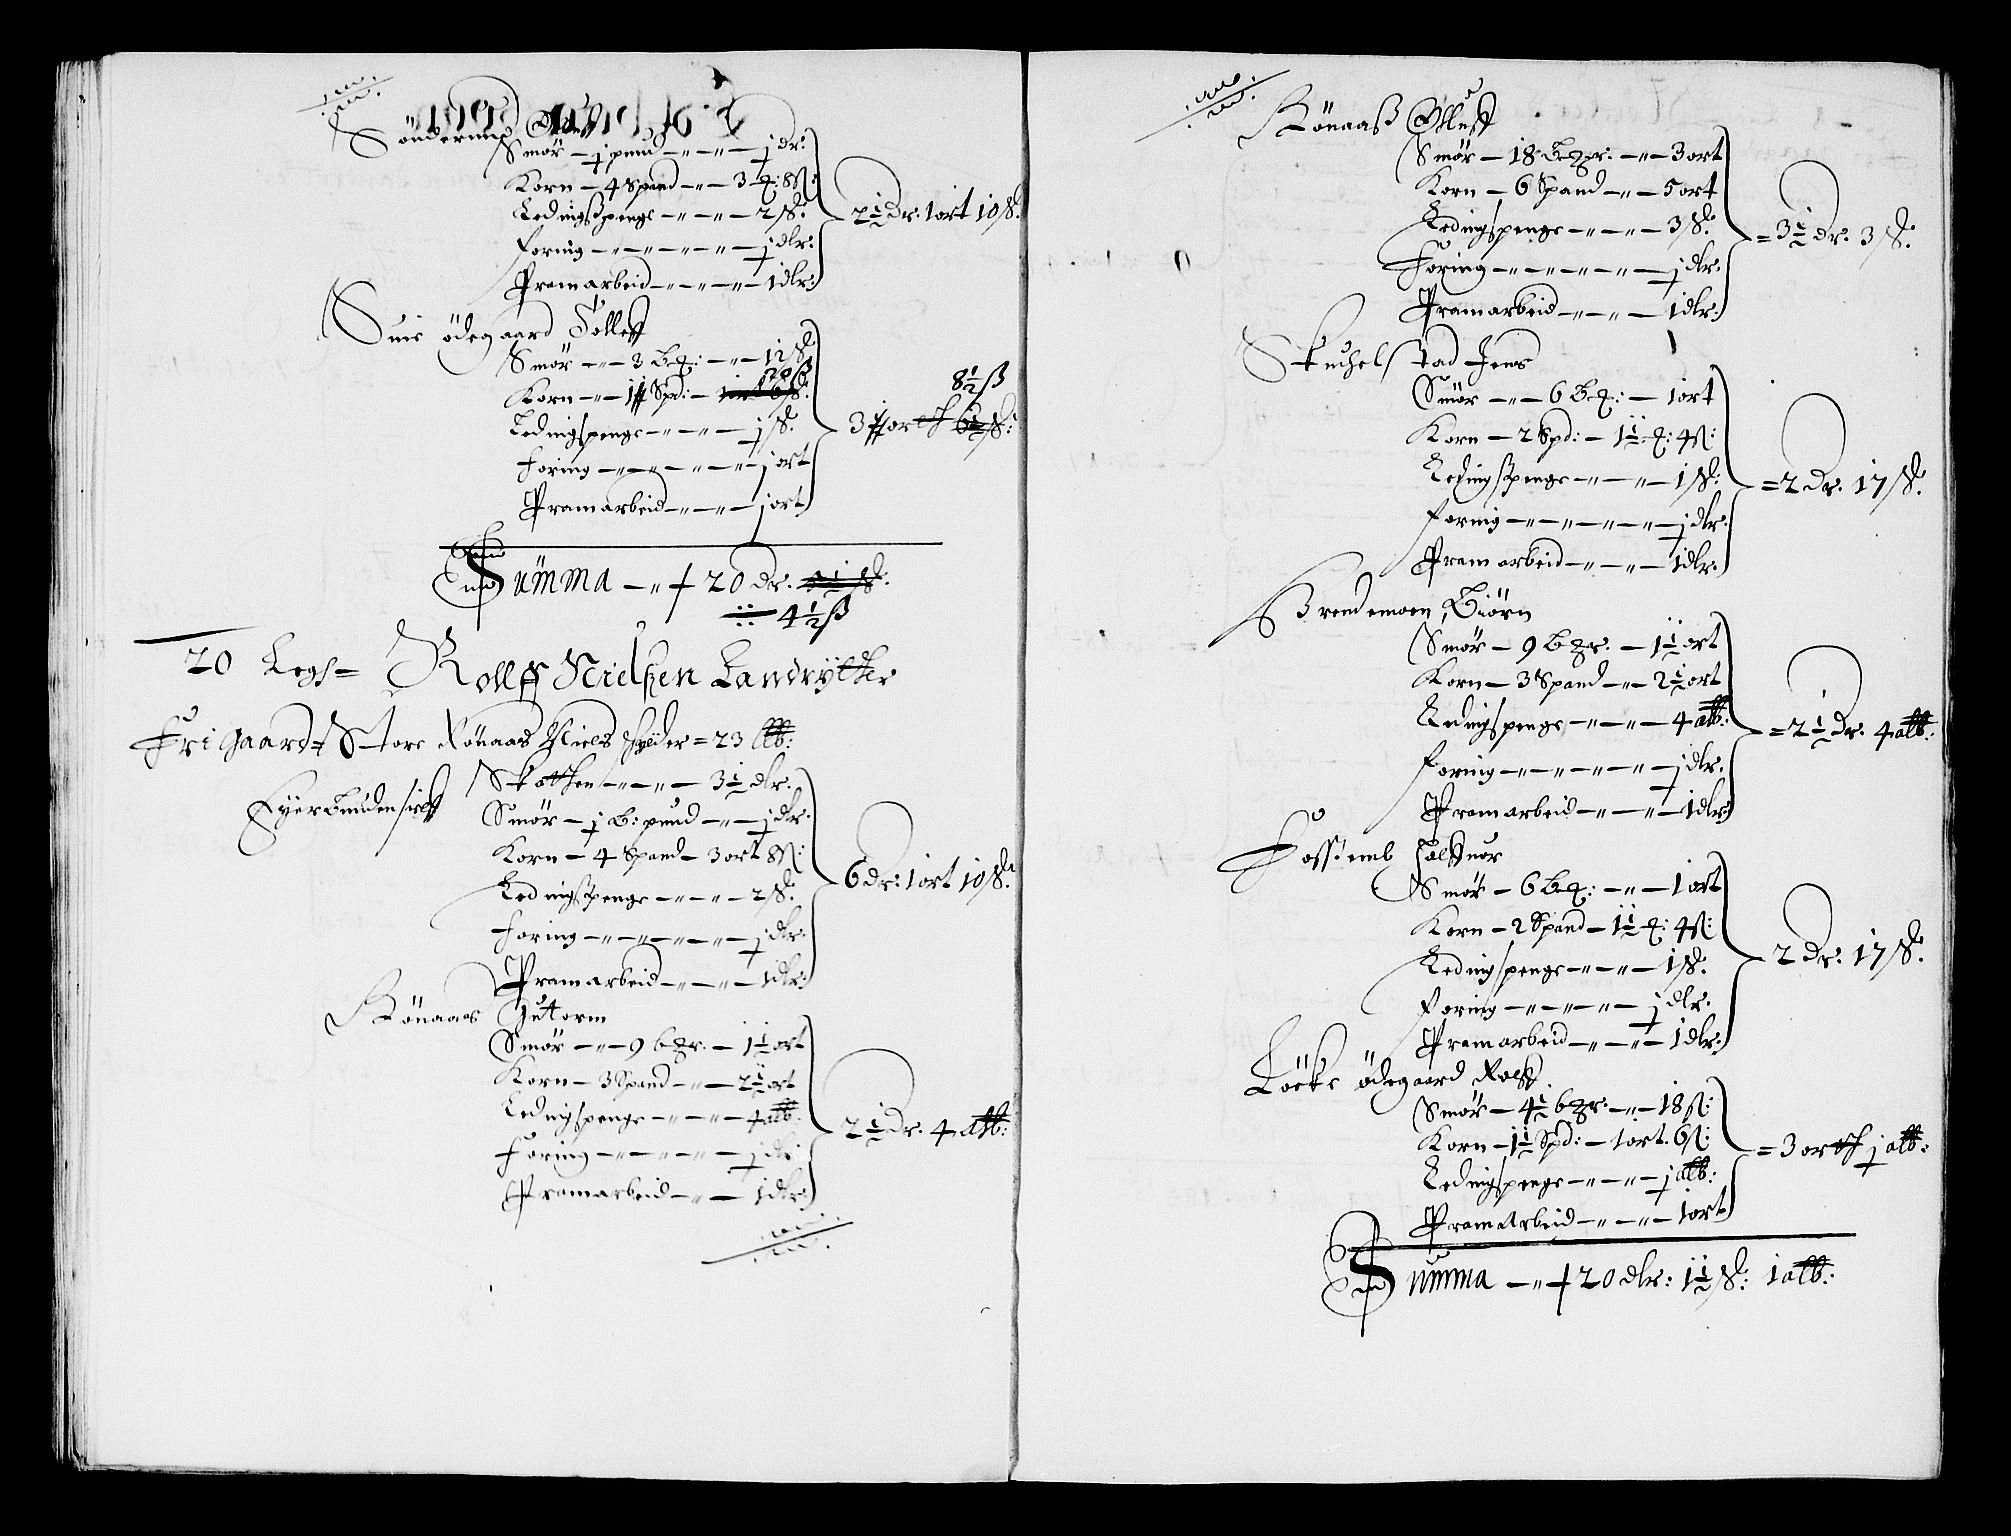 Sönderrup Olluf
Smör — j pund — " — " — j dr:
Korn — 4 Spand — " — 3 q: 8 ß:
Ledingßpenge — " — " — 2 ß:
Foring — " — " — " — " — j dlr:
Pramarbeid — " — " — " — 1 dlr:
2½ dr. 1 ort 10 ß.
ödegaard Tolleff
Smör — " — 3 Bq: — " — 12 ß
20 ß
Korn — " — 1½ Spd: — 1 ort 6 ß:
Ledingspenge — " — " — j ß:
Foring — " — " — " — " — j ort
Pramarbeid — " — " — j ort
8½ ß
3 ort 6½ ß:
Summa — " — 20 dr.
4½ ß
20 Legh = Rolff Nielßen Landrÿtter
Frigaard = Store Rönaas Niels schylder = 23 lb:
Eÿer Bunden sielff
Skatten — " — " — 3½ dlr:
Smör — j B: pund — " — j dlr:
Korn — 4 Spand — 3 ort 8 ß:
Ledingßpenge — " — " — 2 ß:
Foring — " — " — " — " — j dlr:
Pramarbeid — " — " — 1 dlr:
6 dr: 1 ort 10 ß:
Rönaas Guttorm
Smör — " — 9 bzr. — 1½ ort
Korn — 3 Spand — " — 2½ ort
Ledingspenge — " — " — 4 alb:
Foring — " — " — " — " — j dlr:
Pramarbeid — " — 1 dlr:
2½ dr. 4 alb:
Rönaaß Olluff
Smör — 18 Bezr: — " — 3 ort
Korn — 6 Spand — " — 5 ort
Ledingspenge — " — " — 3 ß:
Foring — " — " — " — " — j dlr:
Pramarbeid — " — " — 1 dlr:
= 3½ dr. 3 ß:
Skuchelstad Jens
Smör — " — 6 Bq: — 1 ort
Korn — 2 Spd: — 1½ q: 4 ß:
Ledingßpenge — " — " — 1 ß:
Foring — " — " — " — " — j dlr:
Pramarbeid — " — " — 1 dlr:
= 2 dr. 17 ß.
Brendemoen Biörn
Smör — 9 bzr. — 1½ ort
Korn — 3 Spand — " — 2½ ort
Ledingspenge — " — " — 4 alb:
Foring — " — " — " — " — j dlr.
Pramarbeid — " — " — 1 dlr:
= 2½ dr. 4 alb:
Fossiemb Halffuor
Smör — 6 Bq: — " — 1 ort
Korn — 2 Spand — 1½ q: 4 ß:
Ledingspenge — " — " — 1 ß:
Foring — " — " — " — j dlr.
Pramarbeid — " — " — 1 dlr:
2 dr. 17 ß.
Löcke ödegaard Roeff
Smör — 4½ bzr: — " — 18 ß:
Korn — 1½ Spd: — 1 ort. 6 ß:
Ledingspenge — " — " — j alb:
Pramarbeid — " — " — 1 ort
= 3 orth j alb:
Summa — " — 20 dlr: 1½ ß: 1 alb: